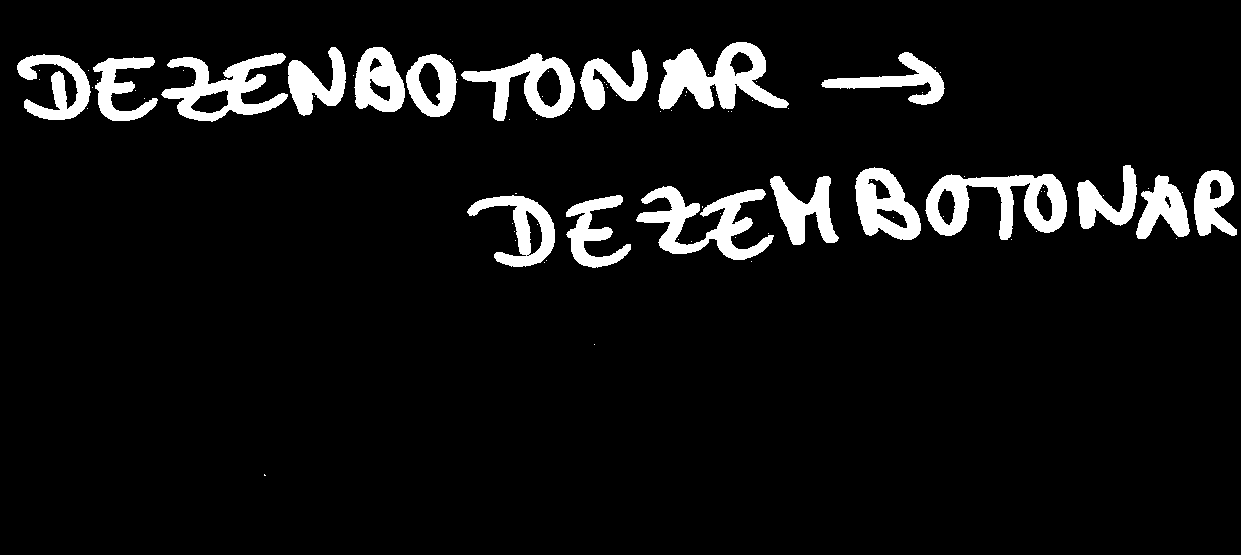 DEZENBOTONAR →
DEZEMBOTONAR